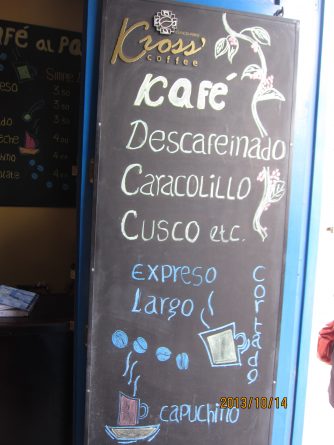 Kross
coffee
Kafé
Descafeinado
Caracolillo
Cusco etc.
Expreso
Largo
Cortado
Capuchino
afé al Pa
3.50
3.50
4.00
2013/10/14